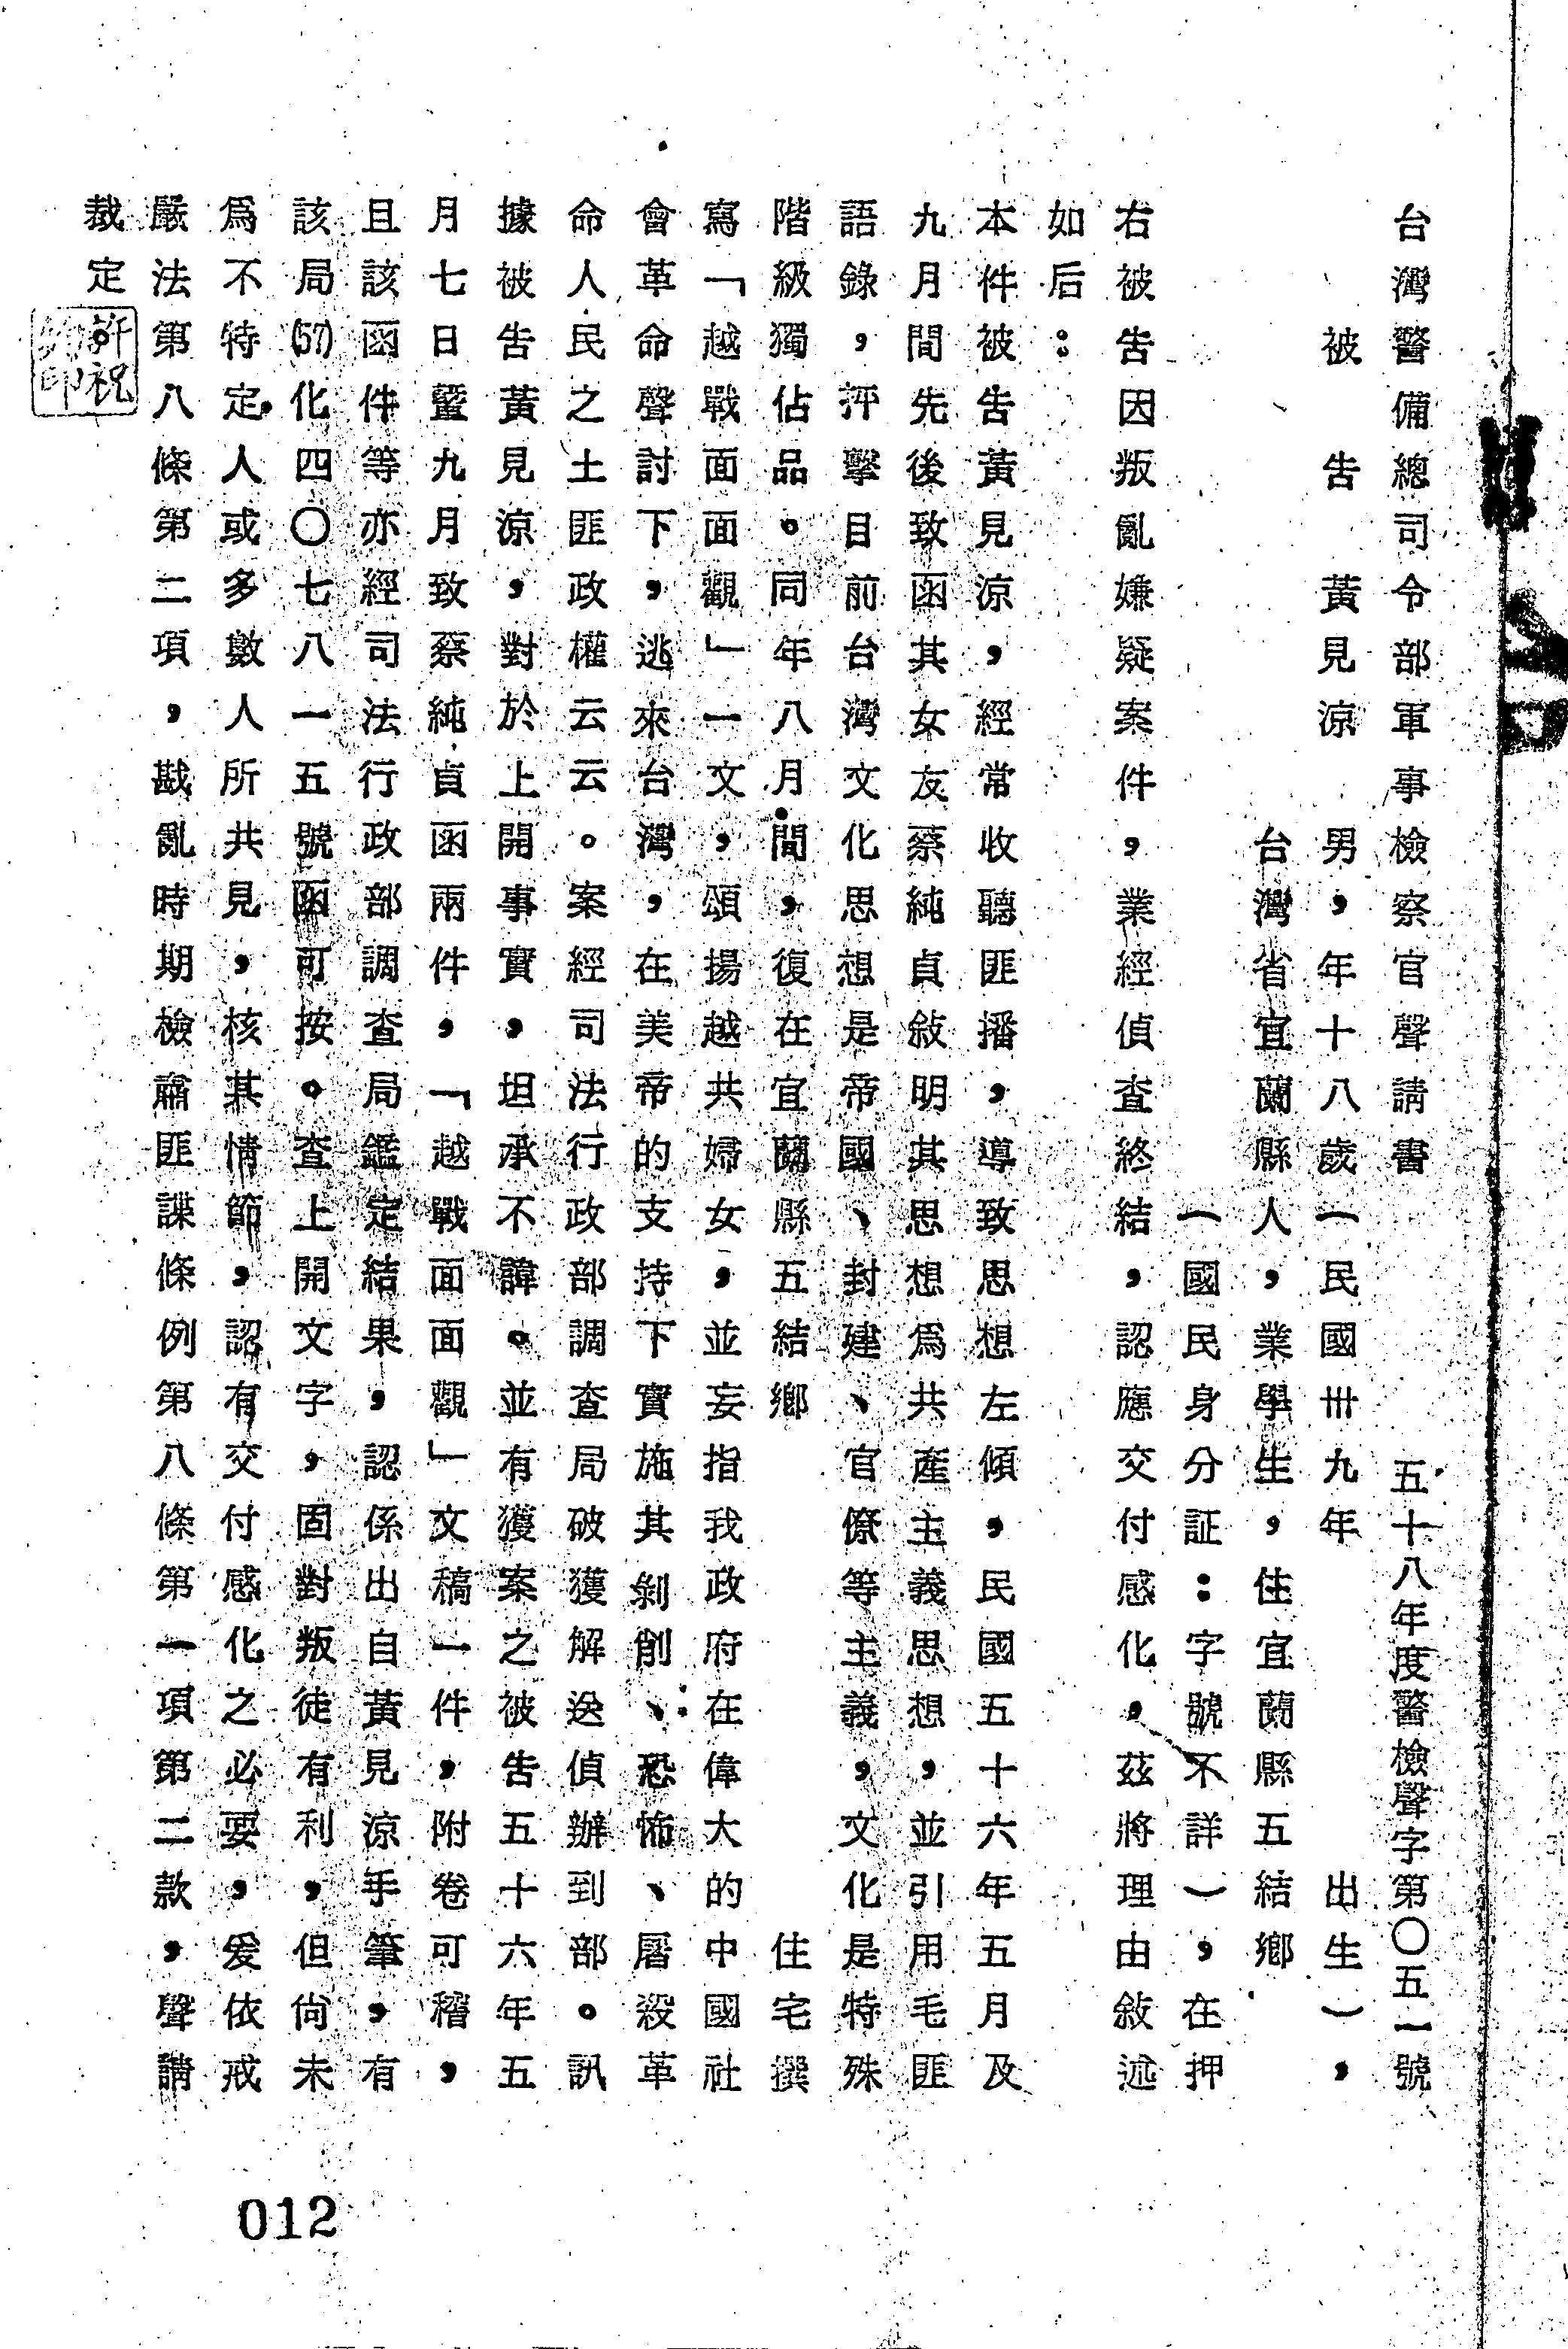 台灣警備總司令部軍事檢察官聲請書 五十八年度警檢聲字第〇五一號
被告 黃見涼 男，年十八歲（民國卅九年 出生），
台灣省宜蘭縣人，業學生，住宜蘭縣五結鄉
（國民身分証：字號不詳），在押
右被告因叛亂嫌疑案件，業經偵查終結，認應交付感化，茲將理由敘述
如后：
本件被告黃見涼，經常收聽匪播，導致思想左傾，民國五十六年五月及
九月間先後致函其女友蔡純貞敘明其思想為共產主義思想，並引用毛匪
語錄，抨擊目前台灣文化思想是帝國、封建、官僚等主義，文化是特殊
階級獨佔品。同年八月間，復在宜蘭縣五結鄉 住宅撰
寫「越戰面面觀」一文，頌揚越共婦女，並妄指我政府在偉大的中國社
會革命聲討下，逃來台灣，在美帝的支持下實施其剝削、恐怖、屠殺革
命人民之土匪政權云云。案經司法行政部調查局破獲解送偵辦到部。訊
據被告黃見涼，對於上開事實，坦承不諱。並有獲案之被告五十六年五
月七日暨九月致蔡純貞函兩件，「越戰面面觀」一文稿一件，附卷可稽，
且該函件等亦經司法行政部調查局鑑定結果，認係出自黃見涼手筆，有
該局(57)化四〇七八一五號函可按。查上開文字，固對叛徒有利，但尚未
為不特定人或多數人所共見，核其情節，認有交付感化之必要，爰依戒
嚴法第八條第二項，戡亂時期檢肅匪諜條例第八條第一項第二款，聲請
裁定。
許祝印
012